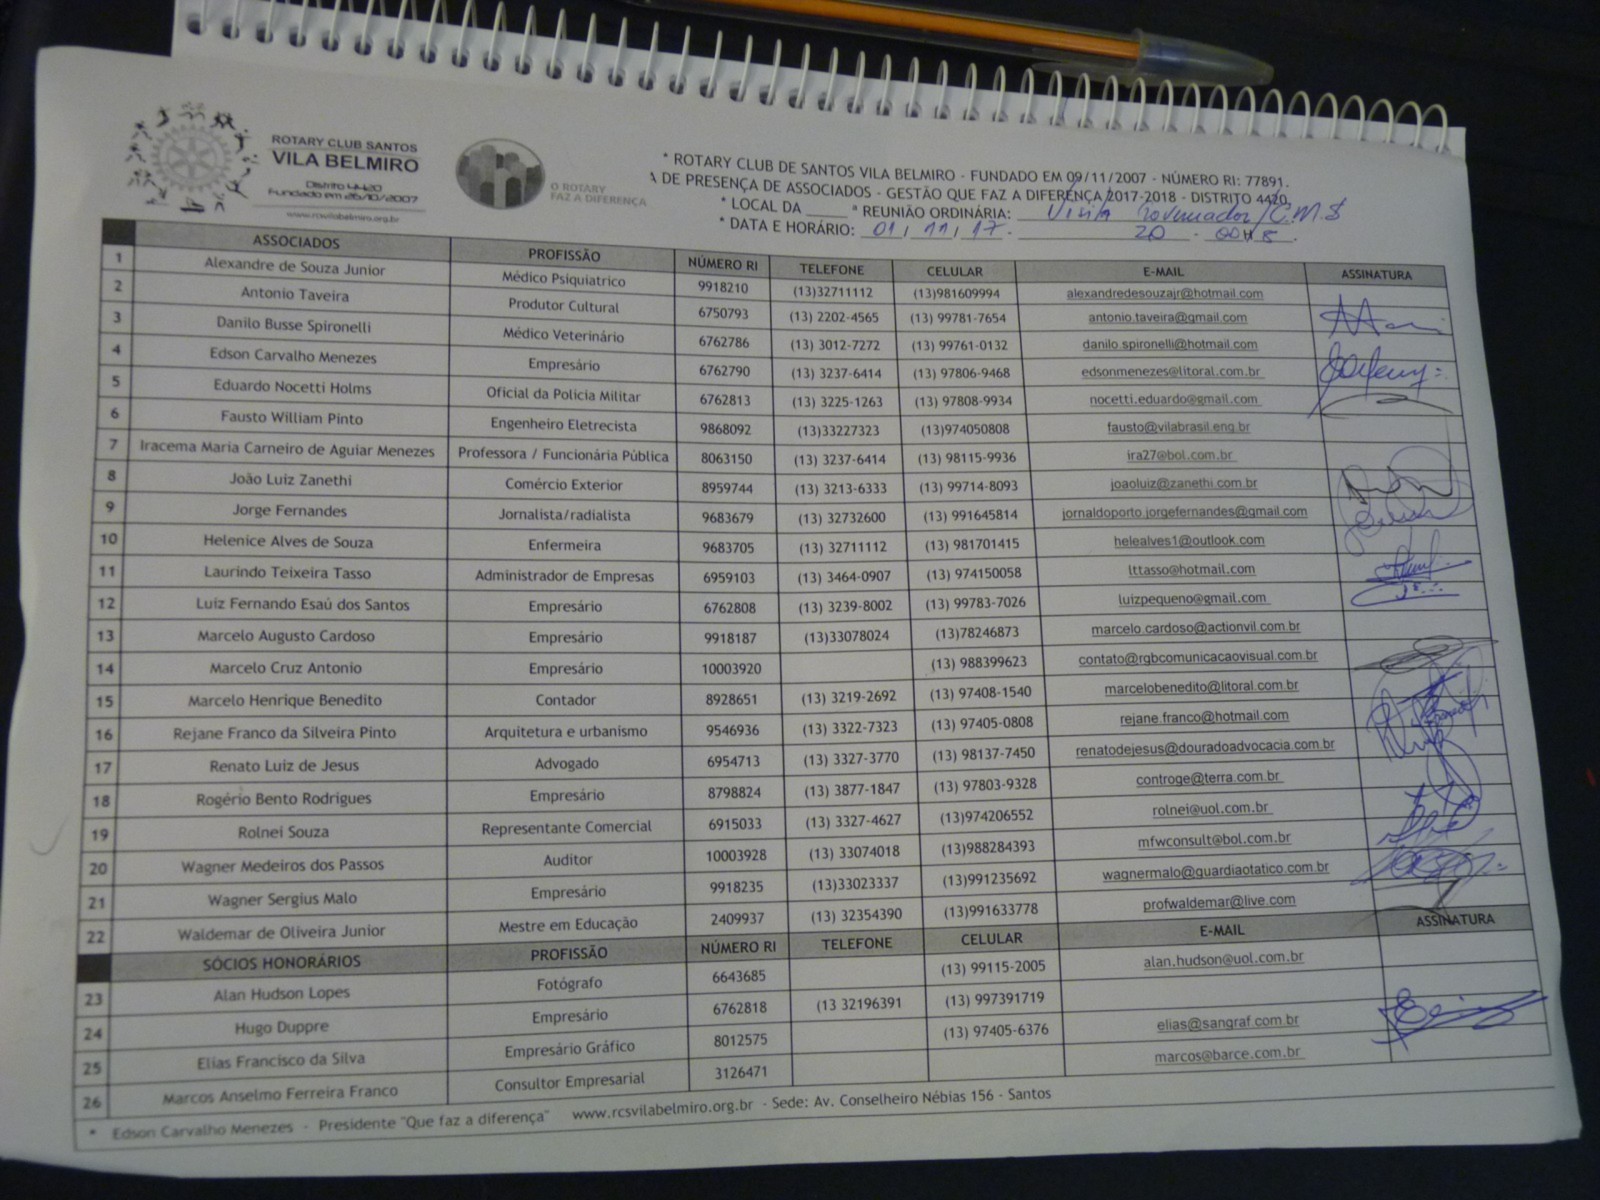 ROTARY CLUB SANTOS
VILA BELMIRO
Distrito 4420
Fundado em 26/10/2007
www.rcsvilabelmiro.org.br
O ROTARY
FAZ A DIFERENÇA
* ROTARY CLUB DE SANTOS VILA BELMIRO - FUNDADO EM 09/11/2007 - NÚMERO RI: 77891.
A DE PRESENÇA DE ASSOCIADOS - GESTÃO QUE FAZ A DIFERENÇA/2017-2018 - DISTRITO 4420.
* LOCAL DA ____ * REUNIÃO ORDINÁRIA: Visita Governador/C.M.S
* DATA E HORÁRIO: 01/11/17. 20 - 00H
ASSOCIADOS PROFISSÃO NÚMERO RI TELEFONE CELULAR E-MAIL ASSINATURA
1 Alexandre de Souza Junior Médico Psiquiatrico 9918210 (13)32711112 (13)981609994 alexandredesouzajr@hotmail.com
2 Antonio Taveira Produtor Cultural 6750793 (13) 2202-4565 (13) 99781-7654 antonio.taveira@gmail.com
3 Danilo Busse Spironelli Médico Veterinário 6762786 (13) 3012-7272 (13) 99761-0132 danilo.spironelli@hotmail.com
4 Edson Carvalho Menezes Empresário 6762790 (13) 3237-6414 (13) 97806-9468 edsonmenezes@litoral.com.br
5 Eduardo Nocetti Holms Oficial da Policia Militar 6762813 (13) 3225-1263 (13) 97808-9934 nocetti.eduardo@gmail.com
6 Fausto William Pinto Engenheiro Eletrecista 9868092 (13)33227323 (13)974050808 fausto@vilabrasil.eng.br
7 Iracema Maria Carneiro de Aguiar Menezes Professora / Funcionária Pública 8063150 (13) 3237-6414 (13) 98115-9936 ira27@bol.com.br
8 João Luiz Zanethi Comércio Exterior 8959744 (13) 3213-6333 (13) 99714-8093 joaoluiz@zanethi.com.br
9 Jorge Fernandes Jornalista/radialista 9683679 (13) 32732600 (13) 991645814 jornaldoporto.jorgefernandes@gmail.com
10 Helenice Alves de Souza Enfermeira 9683705 (13) 32711112 (13) 981701415 helealves1@outlook.com
11 Laurindo Teixeira Tasso Administrador de Empresas 6959103 (13) 3464-0907 (13) 974150058 lttasso@hotmail.com
12 Luiz Fernando Esaú dos Santos Empresário 6762808 (13) 3239-8002 (13) 99783-7026 luizpequeno@gmail.com
13 Marcelo Augusto Cardoso Empresário 9918187 (13)33078024 (13)78246873 marcelo.cardoso@actionvil.com.br
14 Marcelo Cruz Antonio Empresário 10003920 (13) 988399623 contato@rgbcomunicacaovisual.com.br
15 Marcelo Henrique Benedito Contador 8928651 (13) 3219-2692 (13) 97408-1540 marcelobenedito@litoral.com.br
16 Rejane Franco da Silveira Pinto Arquitetura e urbanismo 9546936 (13) 3322-7323 (13) 97405-0808 rejane.franco@hotmail.com
17 Renato Luiz de Jesus Advogado 6954713 (13) 3327-3770 (13) 98137-7450 renatodejesus@douradoadvocacia.com.br
18 Rogério Bento Rodrigues Empresário 8798824 (13) 3877-1847 (13) 97803-9328 controge@terra.com.br
19 Rolnei Souza Representante Comercial 6915033 (13) 3327-4627 (13)974206552 rolnei@uol.com.br
20 Wagner Medeiros dos Passos Auditor 10003928 (13) 33074018 (13)988284393 mfwconsult@bol.com.br
21 Wagner Sergius Malo Empresário 9918235 (13)33023337 (13)991235692 wagnermalo@guardiaotatico.com.br
22 Waldemar de Oliveira Junior Mestre em Educação 2409937 (13) 32354390 (13)991633778 profwaldemar@live.com
SÓCIOS HONORÁRIOS PROFISSÃO NÚMERO RI TELEFONE CELULAR E-MAIL ASSINATURA
23 Alan Hudson Lopes Fotógrafo 6643685 (13) 99115-2005 alan.hudson@uol.com.br
24 Hugo Duppre Empresário 6762818 (13 32196391 (13) 997391719
25 Elias Francisco da Silva Empresário Gráfico 8012575 (13) 97405-6376 elias@sangraf.com.br
26 Marcos Anselmo Ferreira Franco Consultor Empresarial 3126471 marcos@barce.com.br
* Edson Carvalho Menezes - Presidente "Que faz a diferença" www.rcsvilabelmiro.org.br - Sede: Av. Conselheiro Nébias 156 - Santos